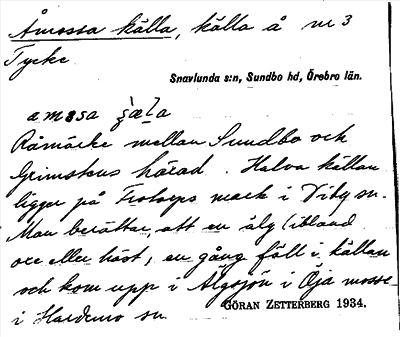 Åmossa källa, källa å nr 3
Tycke
Snavlunda s:n, Sundbo hd, Örebro län.
amɷsa ʂæla
Råmärke mellan Sundbo och
Grimstens härad. Halva källan
ligger på Frotorps mark i Viby sn.
Man berättar, att en älg (ibland
oxe eller häst), en gång föll i källan
och kom upp i Älgsjön i Öja mosse
i Hardemo sn.
GÖRAN ZETTERBERG 1934.